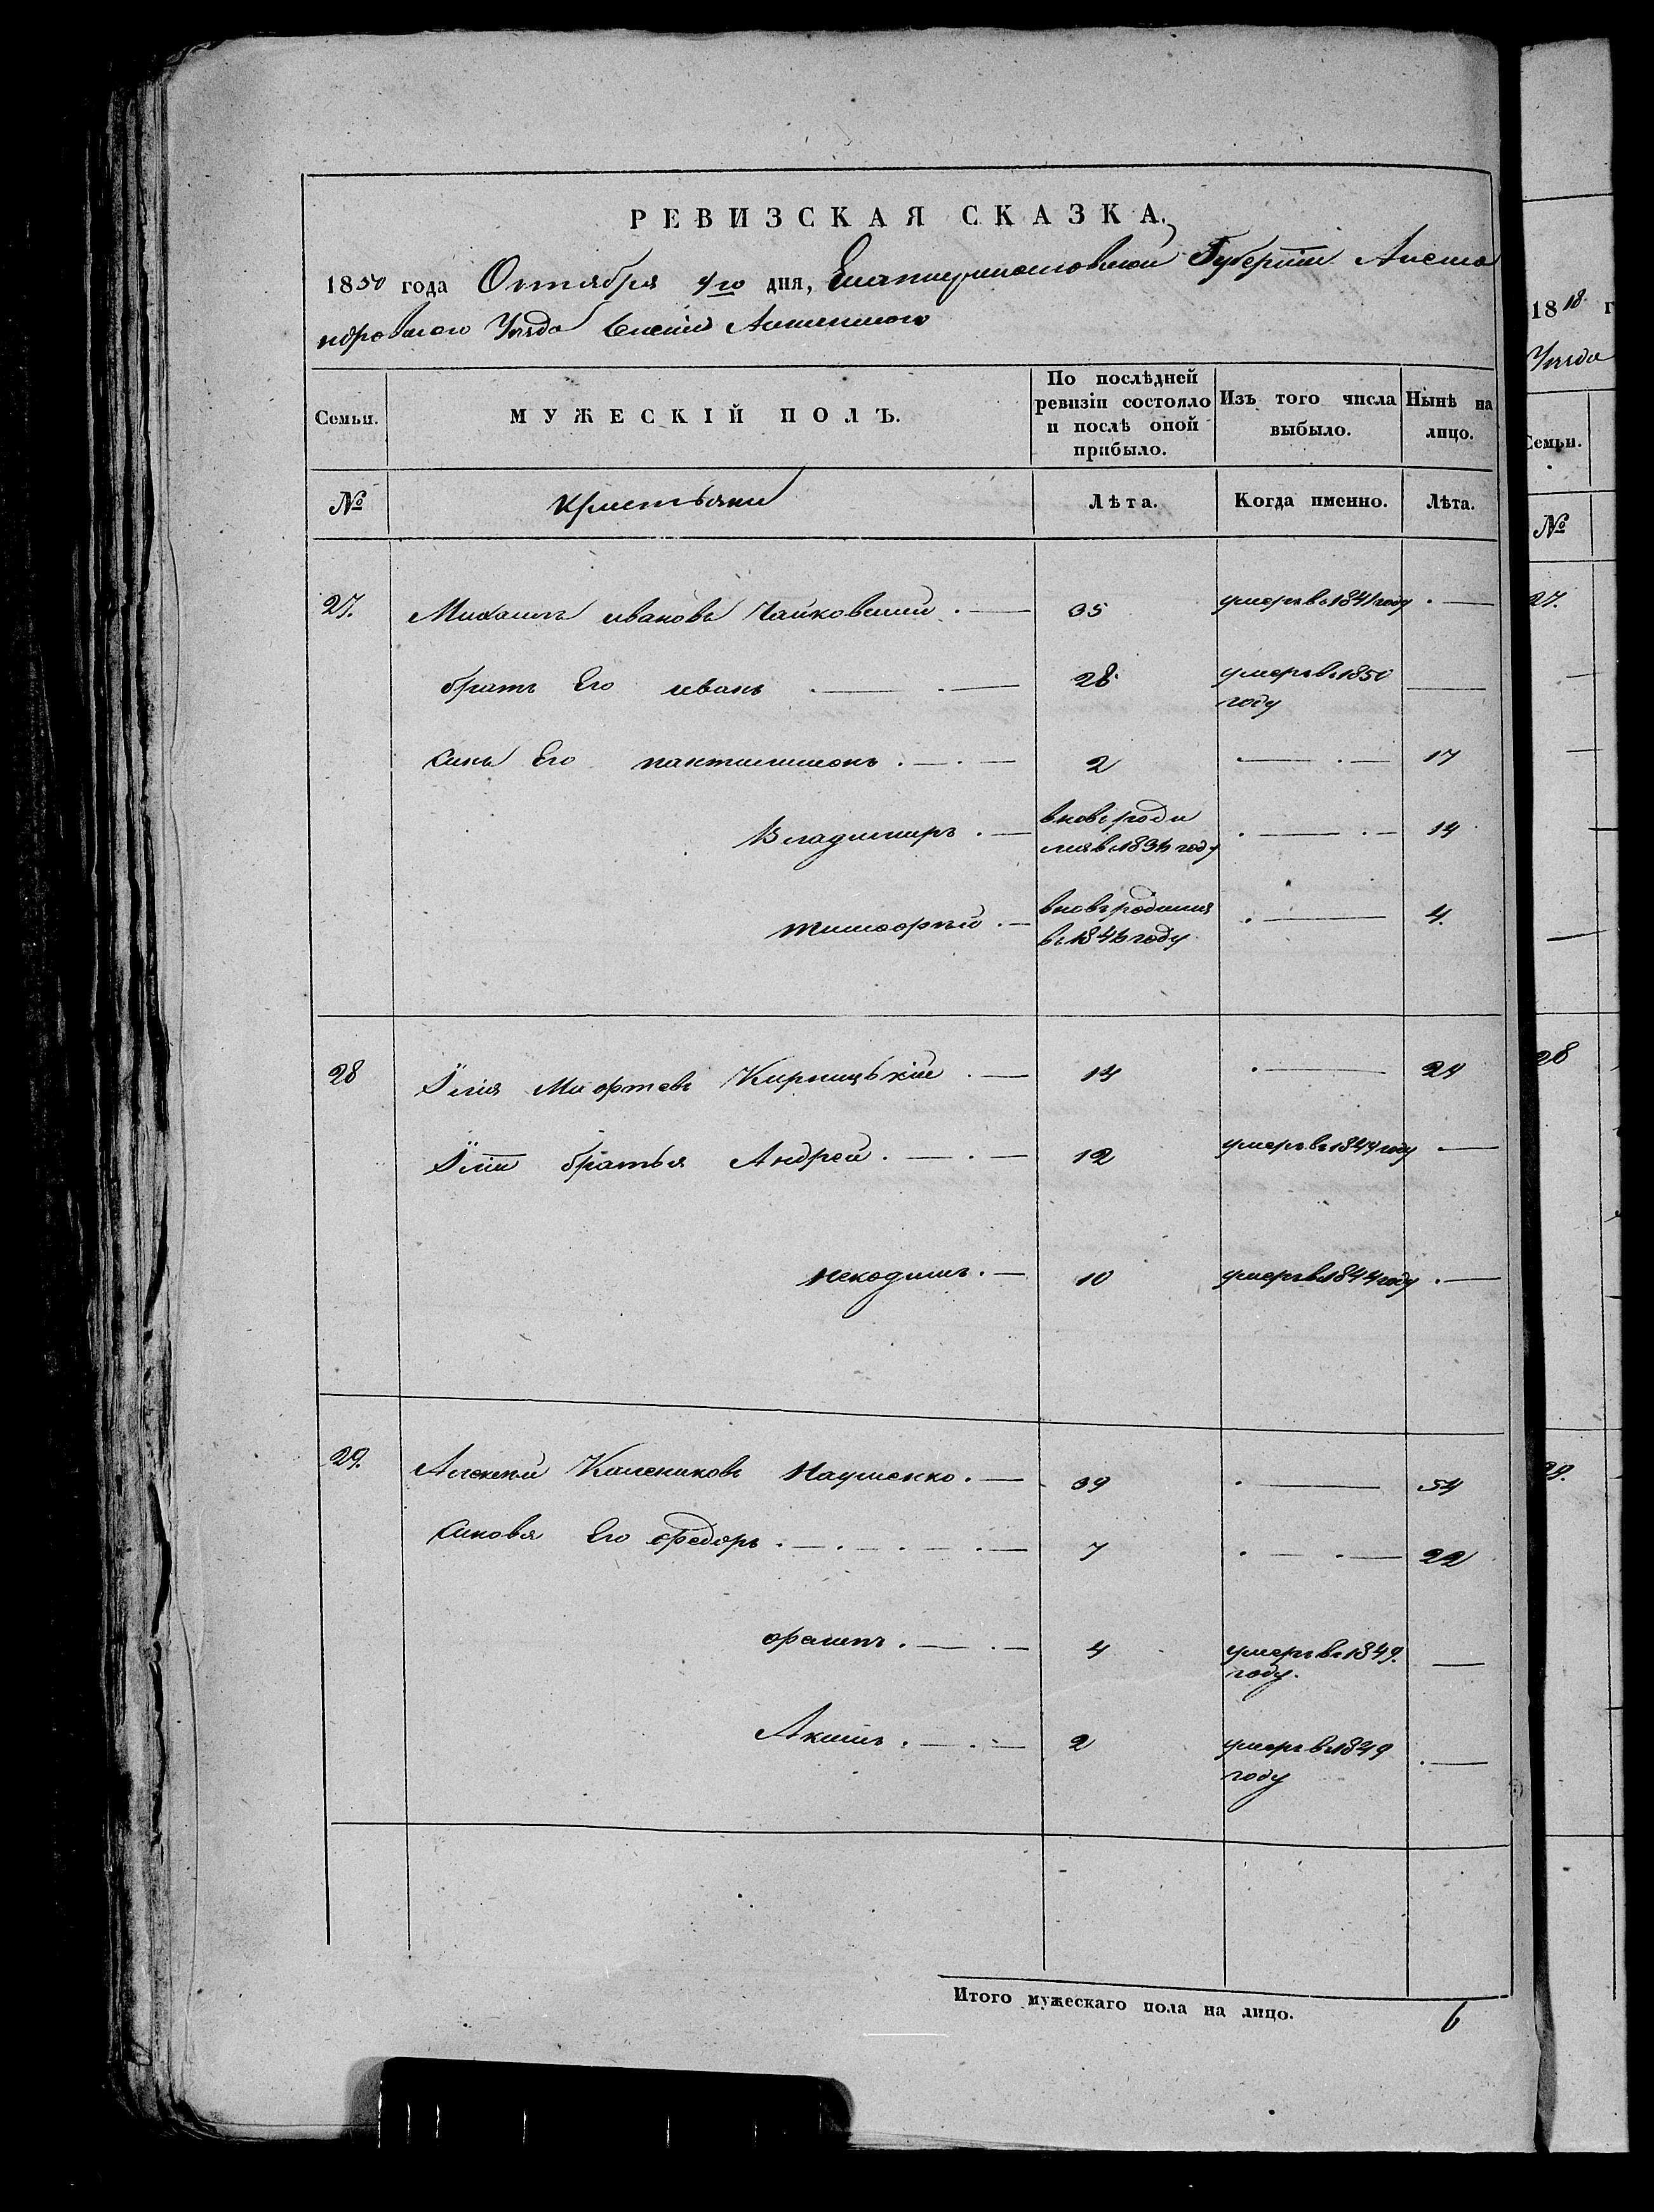 РЕВИЗСКАЯ СКАЗКА.
1850 года Октября 4го дня, Екатеринославской Губернiи Алекса
ндровскаго Уѣзда
Семьи.
МУЖЕСКІЙ ПОЛЪ.
По послѣдней ревизіи состояло и послѣ оной прибыло.
Изъ того числа выбыло.
Нынѣ на лицо.
№
Крестьяни
Лѣта.
Когда именно.
Лѣта.
27. Михаилъ ивановъ Чайковскій . — 35 умеръ въ 1841 году . —
братъ Его иванъ . — . — 28 умеръ въ 1850 году —
Синъ Его пантилимонъ . — . — 2 . — . — 17
Владимиръ . — вновь роди
лся в 1836 году . — . — 14
тимоѳѣй . — вновь родился
въ 1846 году . — 4.
28 Ілія Мафтевъ Кирницькій . — 14 . — 29
Іліи братья Андрей . — . — 12 умеръ въ 1844 году . —
некодимъ . — 10 умеръ въ 1844 году . —
29. Алексѣй Калениковъ Науменко . — 39 . — 54
Синовя Его Федоръ . — . — . — . — 7 . — . — 22
ѳамъ . — . — 4 умеръ въ 1849.
году. —
Акимъ . — . — 2 умеръ въ 1849
году . —
Итого мужескаго пола на лицо. 6
1818 г
Уѣзда
Семьи.
№
27.
28
29.